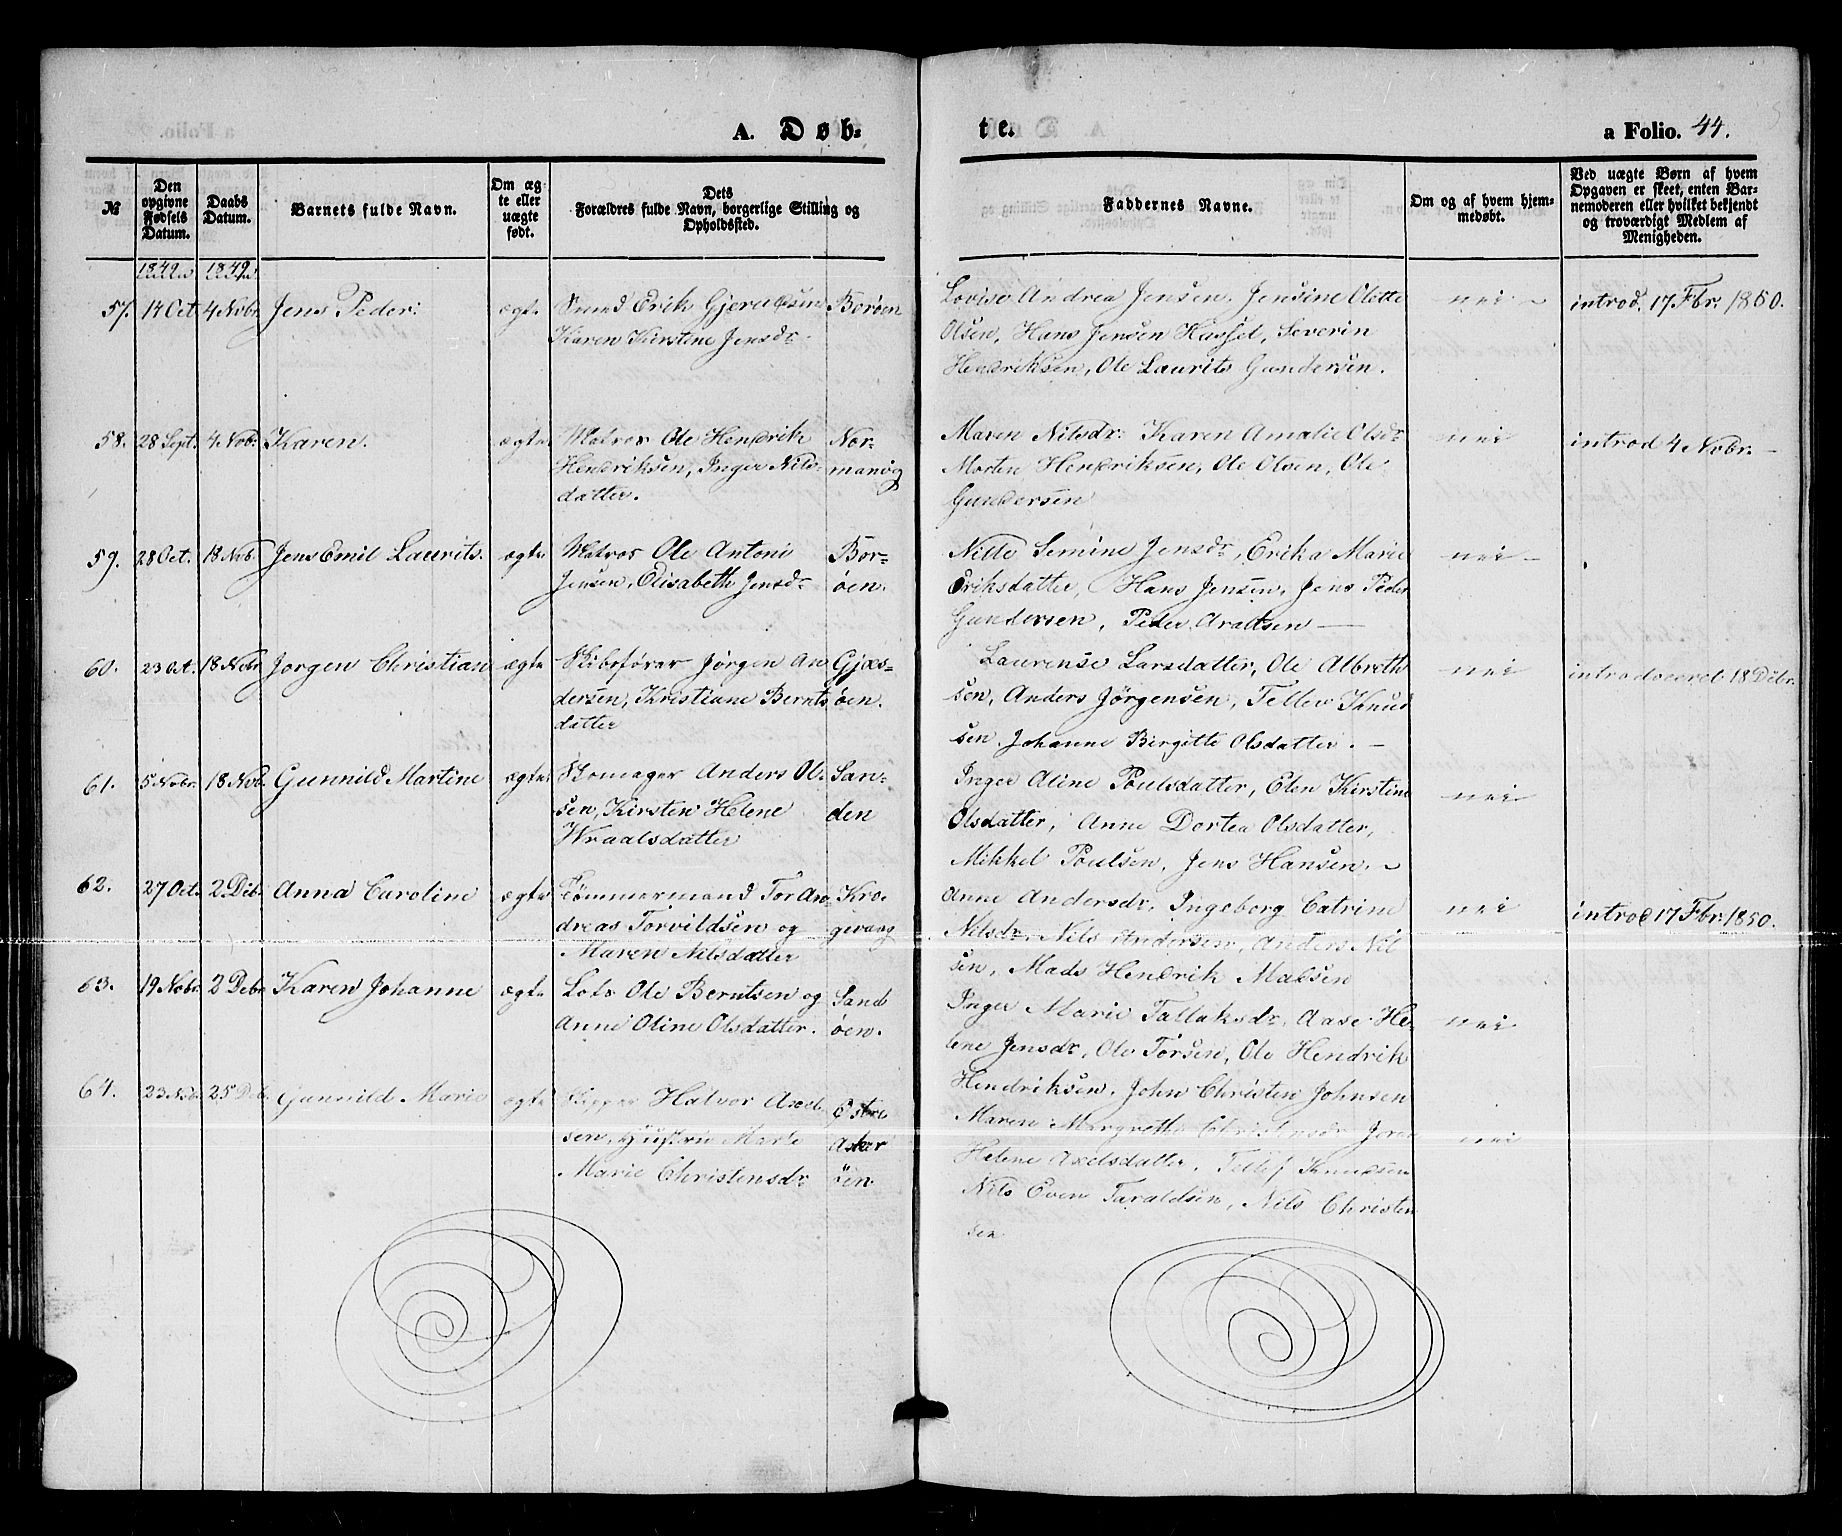 A. Døb-
te.
a Folio. 44.
№
Den opgivne Fødsels Datum.
Daabs Datum.
Barnets fulde Navn.
Om ægte eller uægte født.
Dets Forældres fulde Navn, borgerlige Stilling og Opholdssted.
Faddernes Navne.
Om og af hvem hjemmedøbt.
Ved uægte Børn af hvem Opgaven er skeet, enten Barnemoderen eller hvilket bekjendt og troværdigt Medlem af Menigheden.
1849 1849
57. 14 Oct. 4 Nobr. Jens Peder. ægte Smed Erik Gjeruldsen Borøen
Karen Kirstine Jensdr.
Lovise Andrea Jensen. Jensine Olette nei introd. 17 Fbr. 1850.
Olsen, Hans Jensen Hassel, Severin
Hendriksen, Ole Laurits Gundersen.
58. 28 Sept. 4 Nob. Karen. ægte Matros Ole Hendrik Nor-
Hendriksen, Inger Nils- manvig
datter.
Maren Nilsdr. Karen Amalie Olsdr nei introd 4 Nobr.
Morten Hendriksen, Ole Olsen, Ole
Gundersen
59. 28 Oct. 18 Nob. Jens Emil Laurits. ægte Matros Ole Antoni Bor-
Jensen, Elisabeth Jensdr. øen.
Nille Semine Jensdr, Erika Marie nei
Eriksdatter, Hans Jensen, Jens Peder
Gundersen, Peder
60. 23 Oct. 18 Nobr Jørgen Christian ægte Skibsfører Jørgen An Gjæs-
dersen, Kristiane Bernts øen.
datter
Laurense Larsdatter, Ole Albreth nei introduceret 18 Debr.
sen, Anders Jørgensen, Tellev Knud
sen. Johanne Birgitte Olsdatter.
61. 5 Nobr. 18 Nob. Gunnild Martine ægte Skomager Anders Ol- San-
sen, Kirsten Helene den
Wraalsdatter
Inger Aline Poulsdatter, Elen Kirstine nei
Olsdatter, Anne Dortea Olsdatter,
Mikkel Poulsen, Jens Hansen.
62. 27 Oct. 2 Deb. Anna Caroline ægte Tømmermand Tor An- Kro-
dreas Torvildsen og gevaag
Maren Nilsdatter
Anne Andersdr, Ingeborg Catrine nei introd 17 Fbr. 1850.
Nilsdr, Nils Andersen, Anders Nil
sen, Mads Hendrik Madsen
63. 19 Nobr. 2 Debr Karen Johanne ægte Lods Ole Berntsen og Sand
Anne Oline Olsdatter. øen.
Inger Marie Tallaksdr, Aase He- nei
lene Jensdr, Ole Torsen, Ole Hendrik
Hendriksen. John Christen Johnsen
64. 23 Nob. 25 Deb. Gunnild Marie ægte Skipper Halvor Axel- Østre
sen, Hustru Marte Asker
Marie Christensdr øen
Maren Margrethe Christensdr nei
Helene Axelsdatter. Tellef Knudsen
Nils Even Taraldsen, Nils Christen
sen